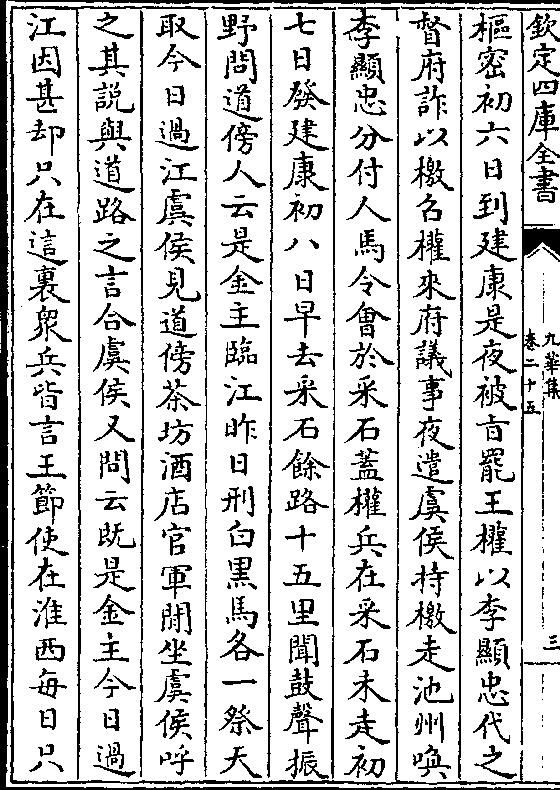 欽定四庫全書
九華集
卷二十五
三
樞密初六日到建康是夜被㫖罷王權以李顯忠代之
督府詐以檄召權來府議事夜遣虞侯持檄走池州喚
李顯忠分付人馬令會於采石蓋權兵在采石未走初
七日發建康初八日早去采石餘路十五里聞鼓聲振
野問道傍人云是金主臨江昨日刑白黒馬各一祭天
取今日過江虞侯見道傍茶坊酒店官軍閒坐虞侯呼
之其説與道路之言合虞侯又問云既是金主今日過
江因甚却只在這裏衆兵皆言王節使在淮西每日只